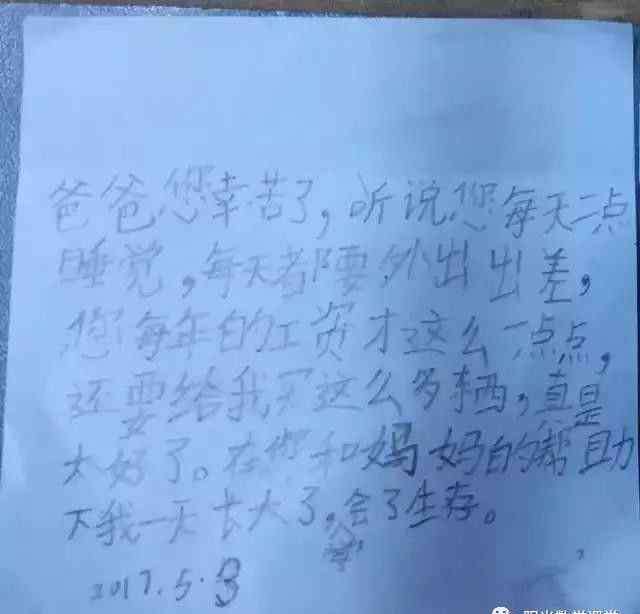 爸爸,您幸苦了,听说,您每天二点
睡觉,每天都要外出出差,
您每年的工资才这么一点点,
还要给我买这么多东西,真是
太好了。在您和妈妈的帮助
下我一天长大了,学会了生存。
2017.5.3